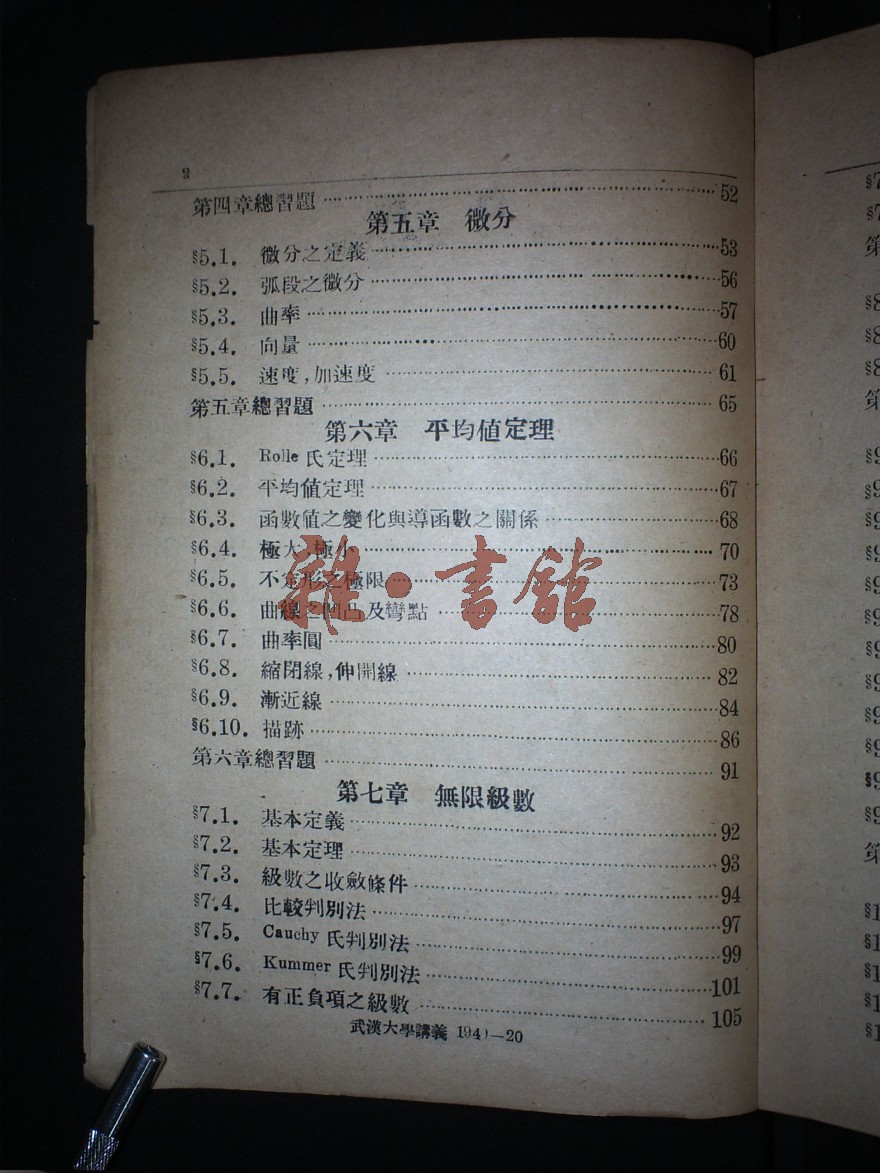 2
第四章總習題 ………… 52
第五章 微分
§5.1. 微分之定義 ………… 53
§5.2. 弧段之微分 ………… 56
§5.3. 曲率 ………… 57
§5.4. 向量 ………… 60
§5.5. 速度,加速度 ………… 61
第五章總習題 ………… 65
第六章 平均值定理
§6.1. Rolle 氏定理 ………… 66
§6.2. 平均值定理 ………… 67
§6.3. 函數值之變化與導函數之關係 ………… 68
§6.4. 極大,極小 ………… 70
§6.5. 不定形之極限 ………… 73
§6.6. 曲線之凹凸及彎點 ………… 78
§6.7. 曲率圓 ………… 80
§6.8. 縮閉線,伸開線 ………… 82
§6.9. 漸近線 ………… 84
§6.10. 描跡 ………… 86
第六章總習題 ………… 91
第七章 無限級數
§7.1. 基本定義 ………… 92
§7.2. 基本定理 ………… 93
§7.3. 級數之收斂條件 ………… 94
§7.4. 比較判別法 ………… 97
§7.5. Cauchy 氏判別法 ………… 99
§7.6. Kummer 氏判別法 ………… 101
§7.7. 有正負項之級數 ………… 105
武漢大學講義
雜·書館